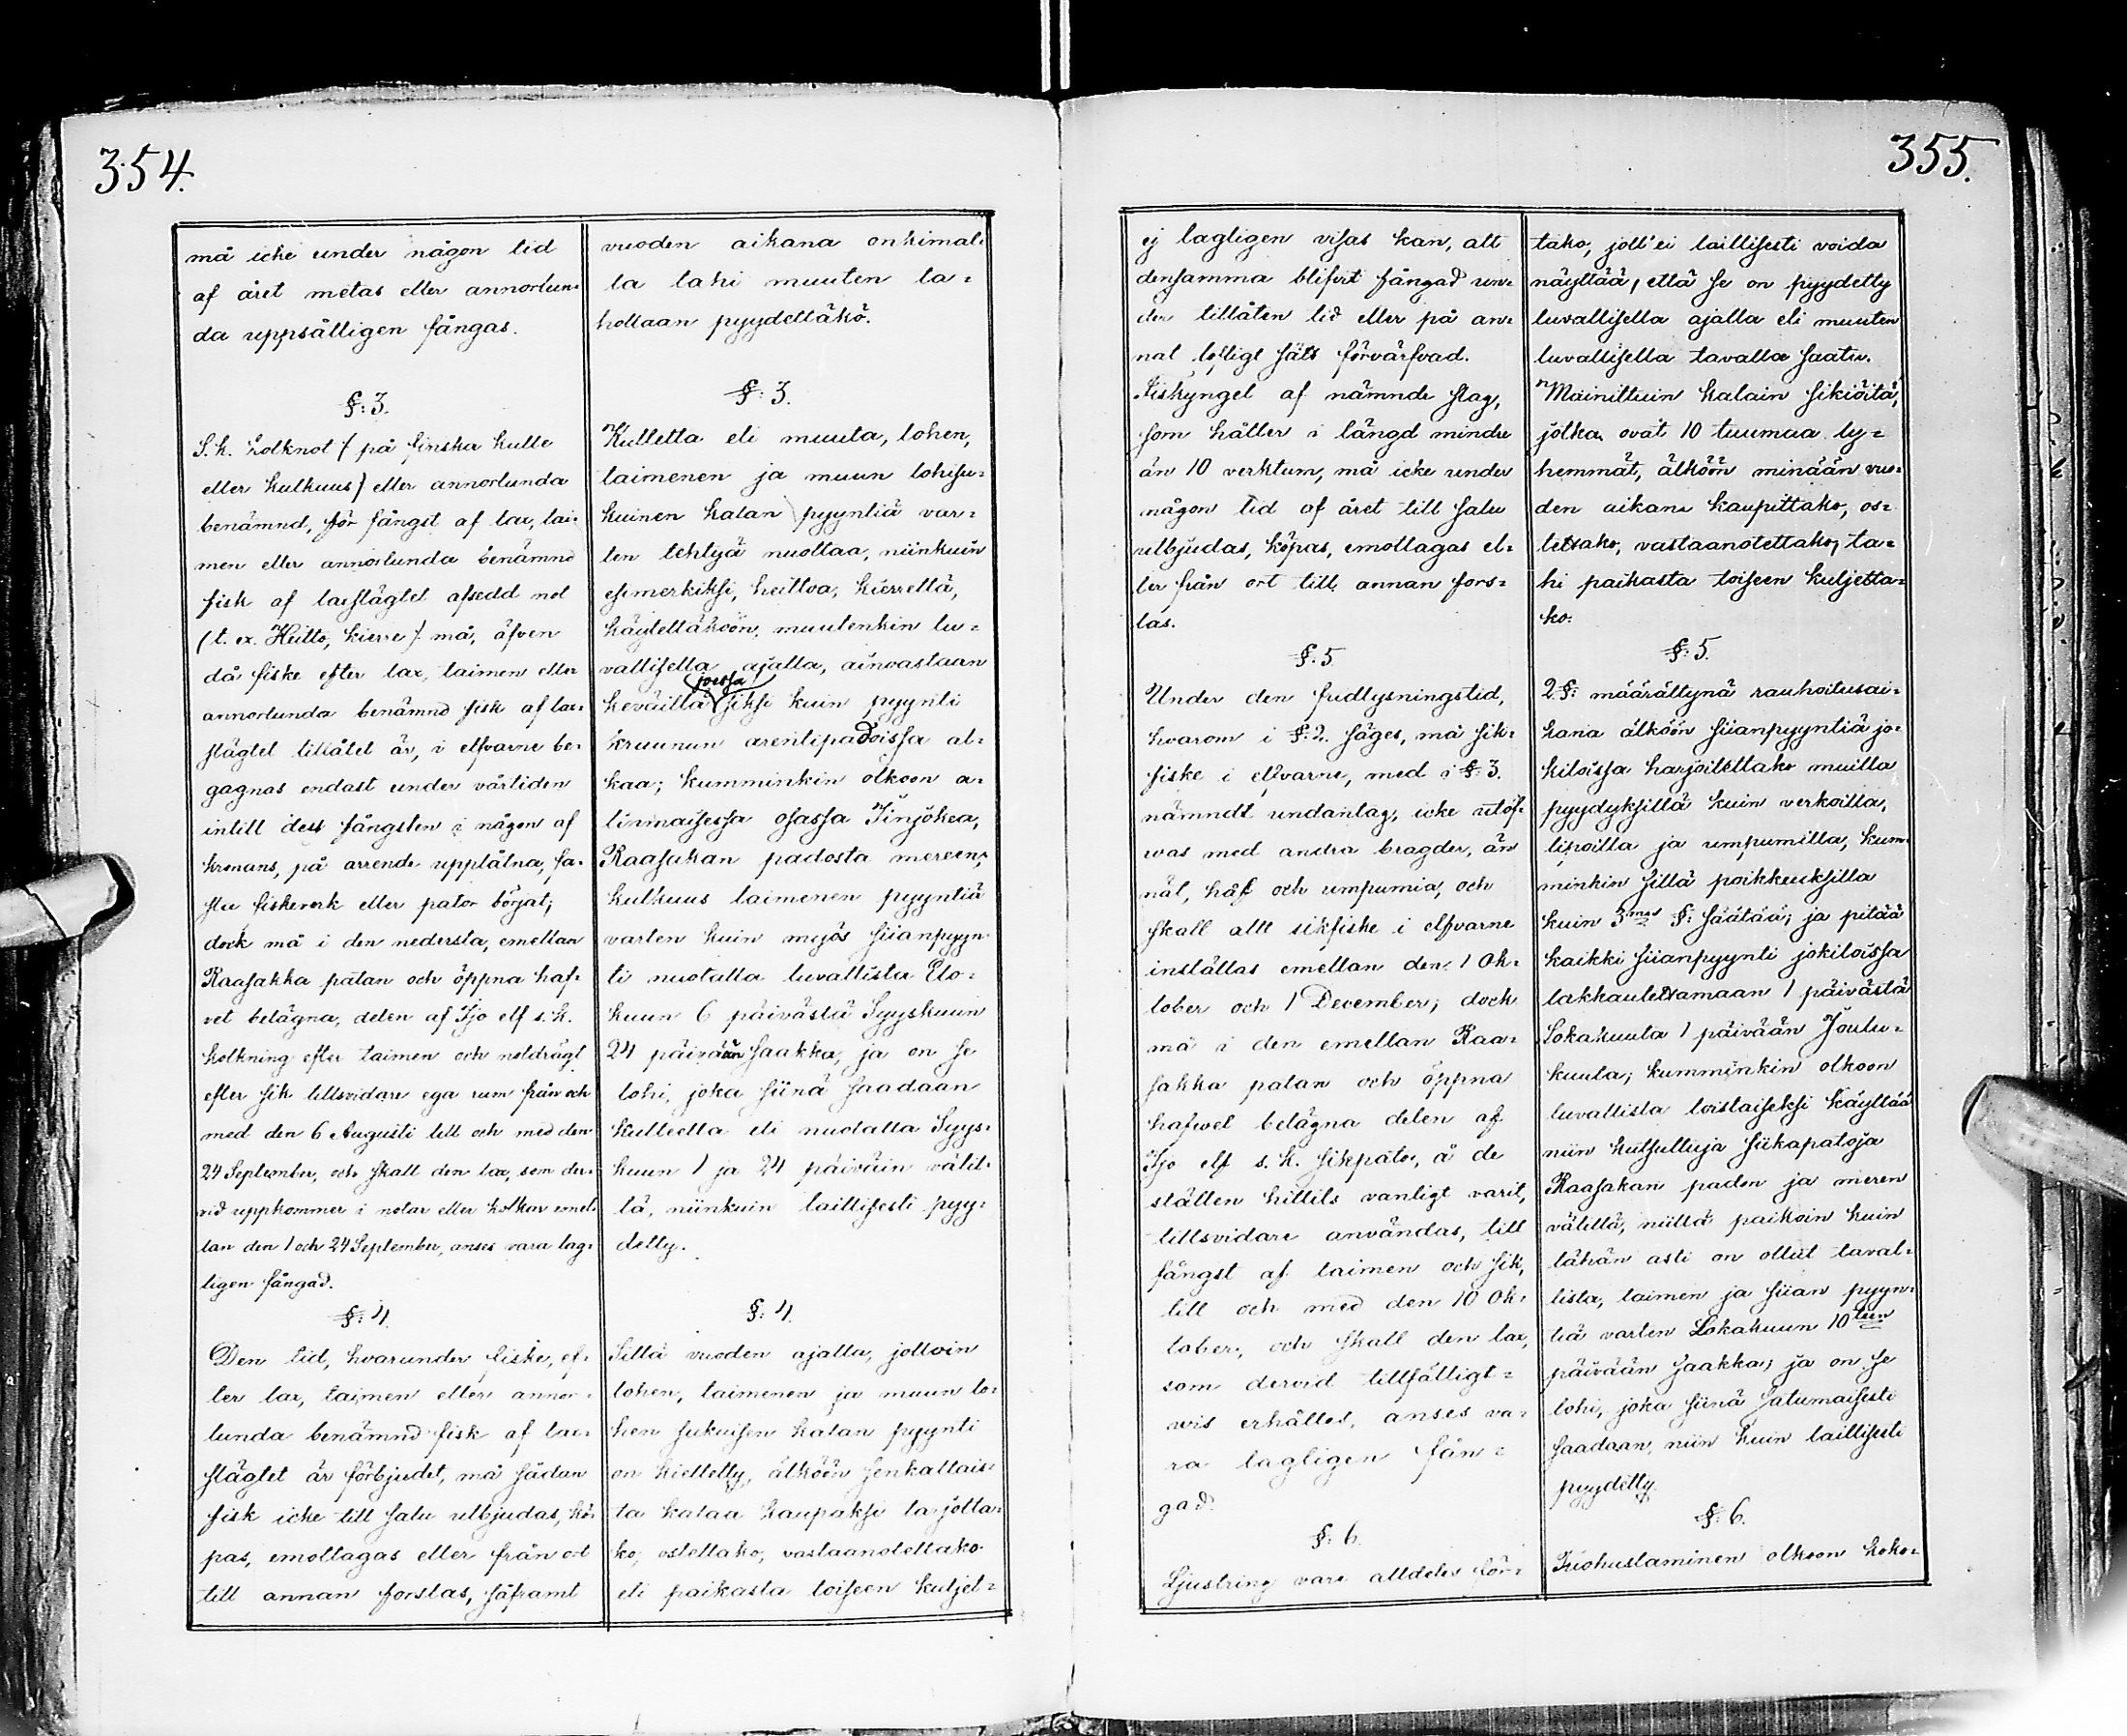 354.
må icke under någon tid
af året metas eller annorlun-
da uppsåtligen fångas.
§: 3.
S. k. kolknot (på finska kulle
eller kulkuus) eller annorlunda
benämnd, för fångst af lax, tai-
men eller annorlunda benämnd
fisk af laxslägtet afsedd not
(t. ex. Heitto, kierre) må, äfven
då fiske efter lax, taimen eller
annorlunda benämnd fisk af lax-
slägtet tillåtet är, i elfvarne be-
gagnas endast under vårtiden
intill dess fångsten i någon af
kronans, på arrende upplåtna, fa-
sta fiskeverk eller pator börjat;
dock må i den nedersta, emellan
Raasakka patan och öppna haf-
vet belägna, delen af Ijo elf s. k.
kolkning efter taimen och notdrägt
efter sik tillsvidare ega rum från och
med den 6 Augusti till och med den
24 September, och skall den lax, som der-
vid uppkommer i notar eller kolkar emel-
lan den 1 och 24 September, anses vara lag-
ligen fångad.
§: 4.
Den tid, hvarunder fiske, ef-
ter lax, taimen eller annor-
lunda benämnd fisk af lax-
slägtet är förbjudet, må sådan
fisk icke till salu utbjudas, kö-
pas, emottagas eller från ort
till annan forslas, såframt
vuoden aikana onkimal-
la tahi muuten ta-
hollaan pyydettäkö.
§: 3.
Kulletta eli muuta, lohen,
taimenen ja muun lohisu-
kuinen kalan pyyntiä var-
ten tehtyä nuottaa, niinkuin
esimerkiksi, heittoa, kierrettä,
käytettäköön, muutenkin lu-
vallisella ajalla, ainoastaan
joessa
keväillä siksi kuin pyynti
kruunun arentipadoissa al-
kaa; kumminkin olkoon a-
linmaisessa osassa Iinjokea,
Raasakan padosta mereen,
kulkuus taimenen pyyntiä
varten kuin myös siianpyyn-
ti nuotalla luvallista Elo-
kuun 6 päivästä Syyskuun
24 päivään saakka, ja on se
lohi, joka siinä saadaan
kulleella eli nuotalla Syys-
kuun 1 ja 24 päiväin välil-
lä, niinkuin laillisesti pyy-
detty.
§: 4.
Sillä vuoden ajalla, jolloin
lohen, taimenen ja muun lo-
hen sukuisen kalan pyynti
on kielletty, älköön senkaltais-
ta kalaa kaupaksi tarjotta-
ko, ostettako, vastaanotettako
eli paikasta toiseen kuljet-
355.
ej lagligen visas kan, att
densamma blifvit fångad un-
der tillåten tid eller på an-
nat lofligt sätt förvärfvad.
Fiskyngel af nämnde slag,
som håller i längd mindre
än 10 verktum, må icke under
någon tid af året till salu
utbjudas, köpas, emottagas el-
ler från ort till annan fors-
las.
§: 5.
Under den fridlysningstid,
hvarom i §: 2. säges, må sik-
fiske i elfvarne, med i §: 3.
nämndt undantag, icke utöf-
was med andra bragder, än
nät, håf och umpumia, och
skall allt sikfiske i elfvarne
inställas emellan den 1 Ok-
tober och 1 December; dock
må i den emellan Raa-
sakka patan och öppna
hafwet belägna delen af
Ijo elf s. k. sikpator, å de
ställen hittils vanligt varit,
tillsvidare användas, till
fångst af taimen och sik,
till och med den 10 Ok-
tober, och skall den lax,
som dervid tillfälligt-
wis erhålles, anses va-
ra lagligen fån-
gad.
§: 6.
Ljustring vare alldeles för-
tako, joll'ei laillisesti voida
näyttää, että se on pyydetty
luvallisella ajalla eli muuten
luvallisella tavalla saatu.
Mainittuin kalain sikiöitä,
jotka ovat 10 tuumaa ly-
hemmät, älköön minään vuo-
den aikana kaupittako, os-
tettako, vastaanotettako, ta-
hi paikasta toiseen kuljetta-
ko.
§: 5.
2 §: määrättynä rauhoitusai-
kana älköön siianpyyntiä jo-
kiloissa harjoitettako muilla
pyydyksillä kuin verkoilla,
lipoilla ja umpumilla, kum-
minkin sillä poikkeuksilla
kuin 3mas §: säätää; ja pitää
kaikki siianpyynti jokiloissa
lakkautettamaan 1 päivästä
Lokakuuta 1 päivään Joulu-
kuuta; kumminkin olkoon
luvallista toistaiseksi käyttää
niin kutsuttuja siikapatoja
Raasakan padon ja meren
välillä, niillä paikoin kuin
tähän asti on ollut taval-
lista, taimen ja siian pyyn-
tiä varten Lokakuun 10ten
päivään saakka; ja on se
lohi, joka siinä satumaisesti
saadaan, niin kuin laillisesti
pyydetty.
§: 6.
Tuohustaminen olkoon koko-